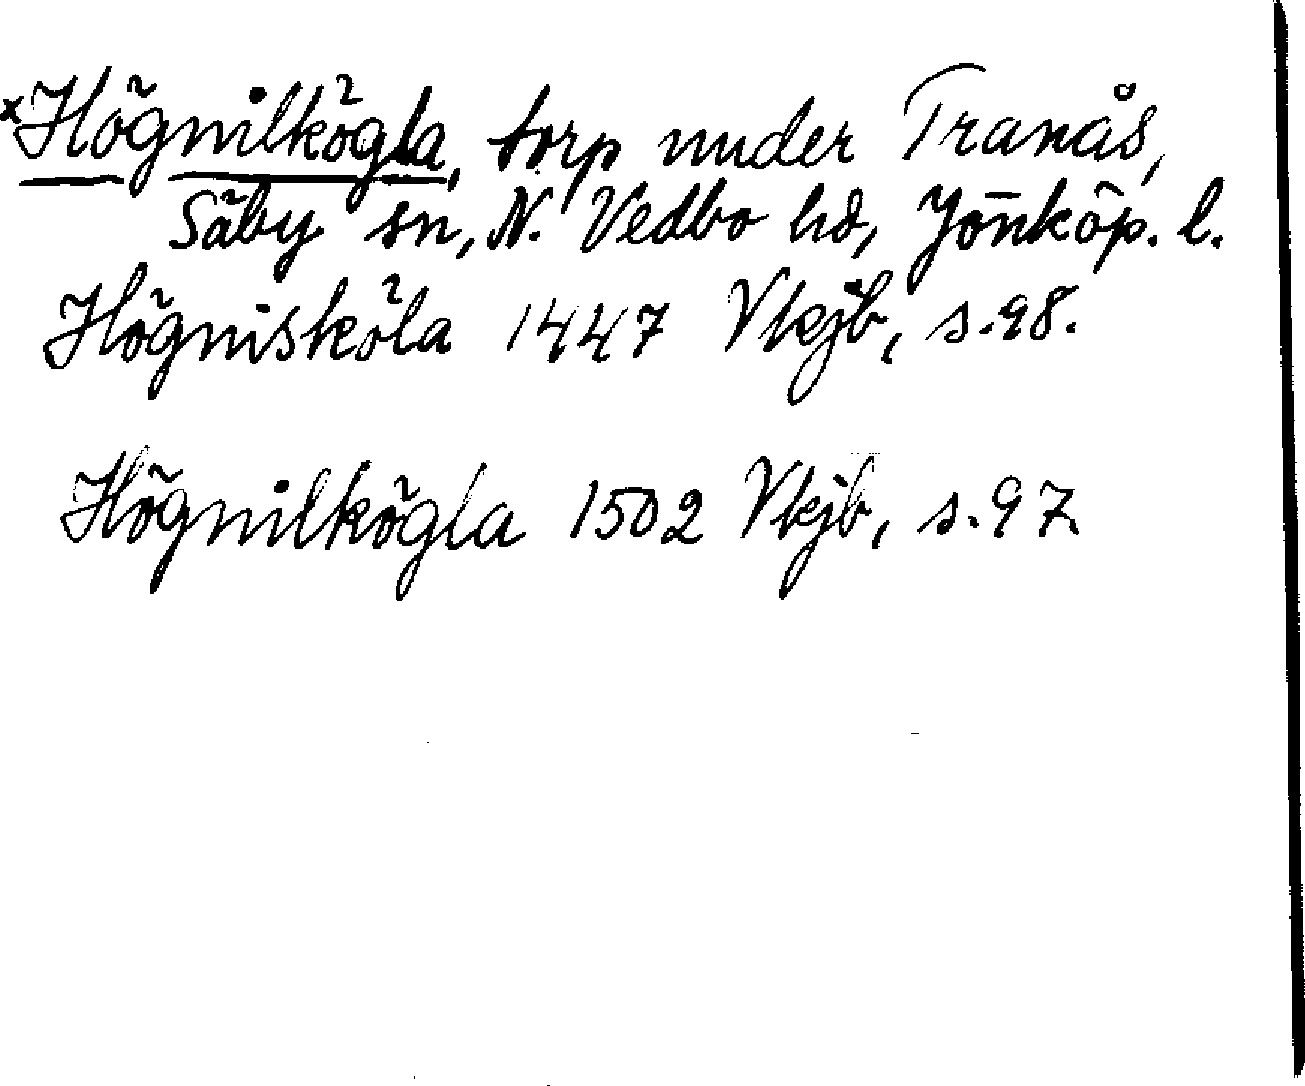 x Högnilkögla, torp under Tranås,
Säby sn, N. Vedbo hd, Jönköp. l.
Högnisköla 1447 Vkjb, s. 98.
Högnilkögla 1502 Vkjb, s. 97.